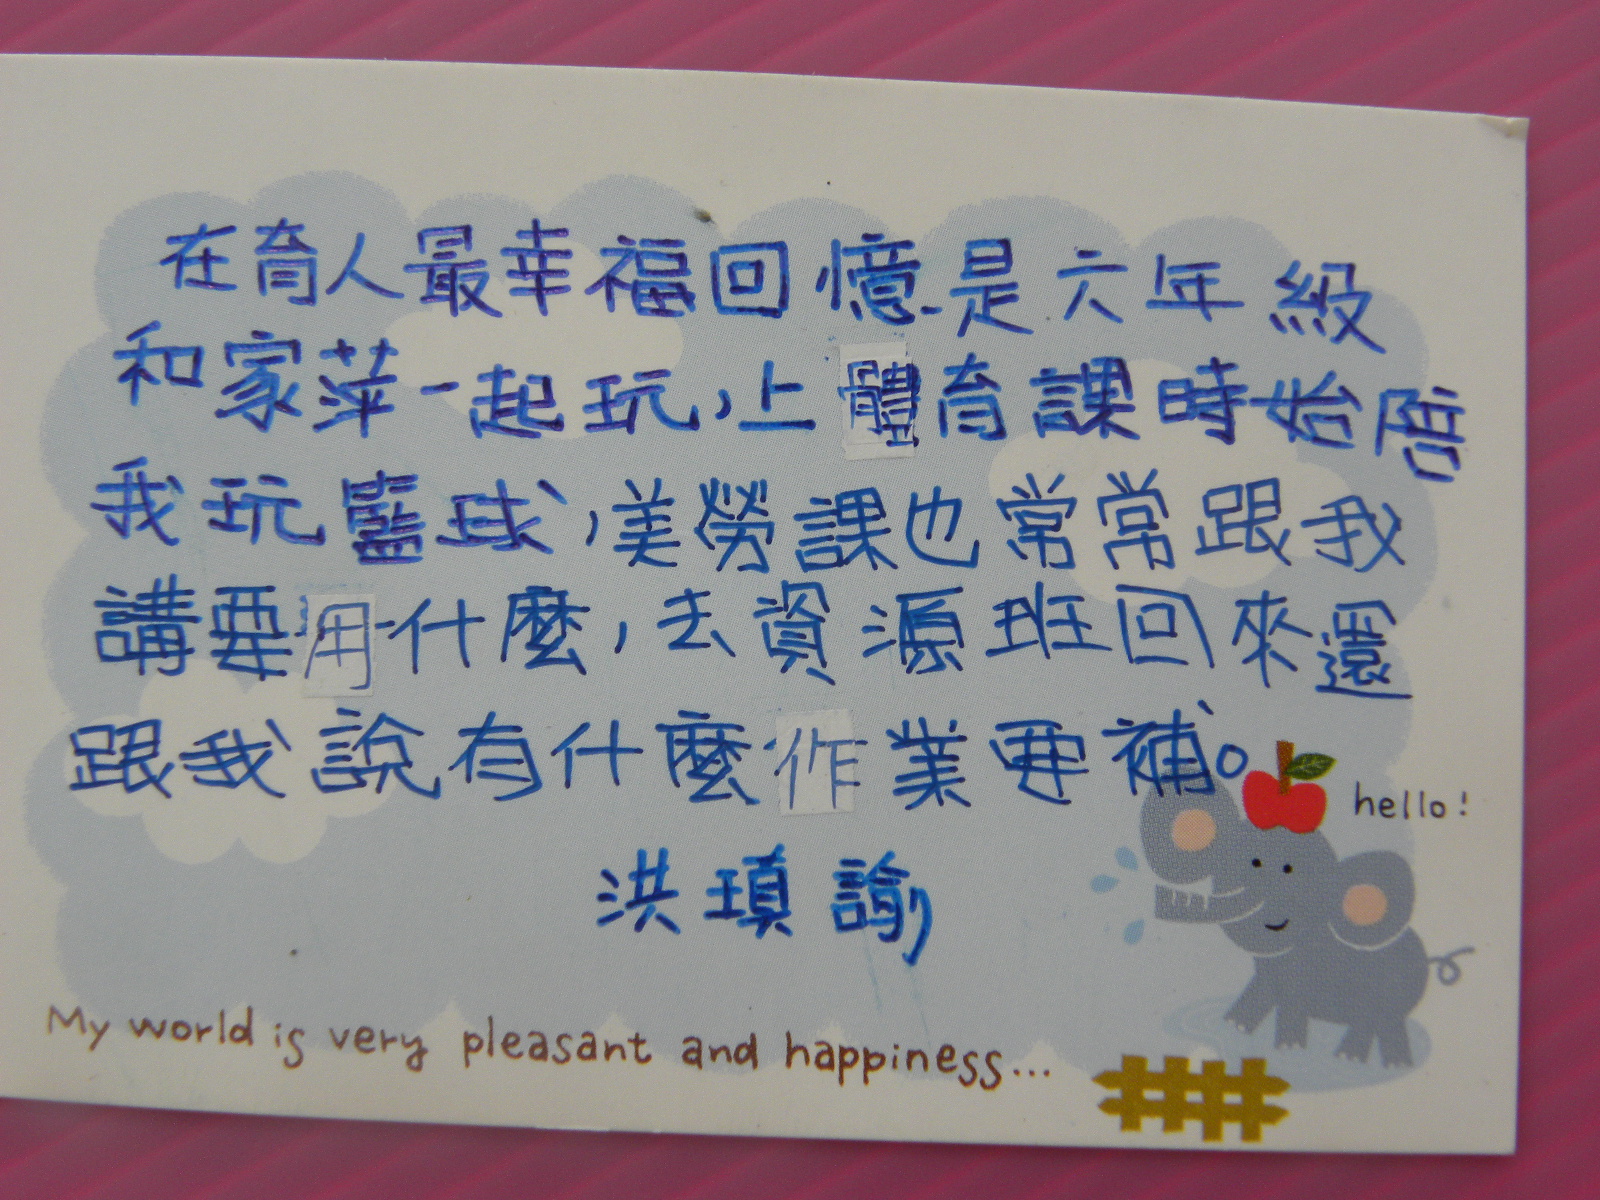 在育人最幸福回憶是六年級
和家萍一起玩,上體育課時始陪
我玩籃球,美勞課也常常跟我
講要用什麼,去資源班回來還
跟我說有什麼作業要補。
hello!
洪瑱諭
My world is very pleasant and happiness...